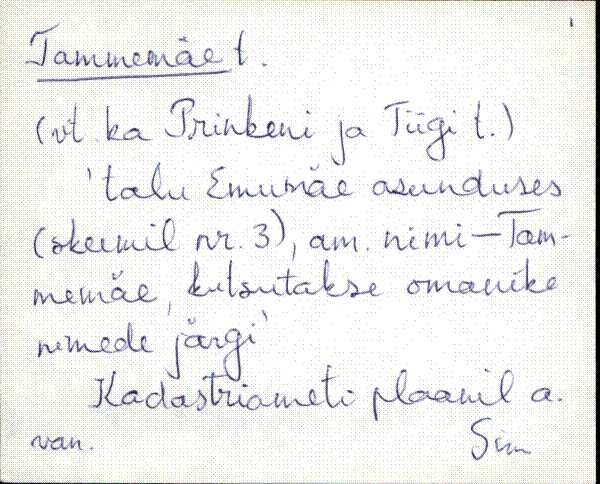 Tammemäe t.
(vt. ka Prinkeni ja Tiigi t.)
'talu Emumäe asunduses
(skeemil nr. 3), am. nimi—Tam-
memäe, kutsutakse omanike
nimede järgi'
Kadastriameti plaanil a.
van. Sim